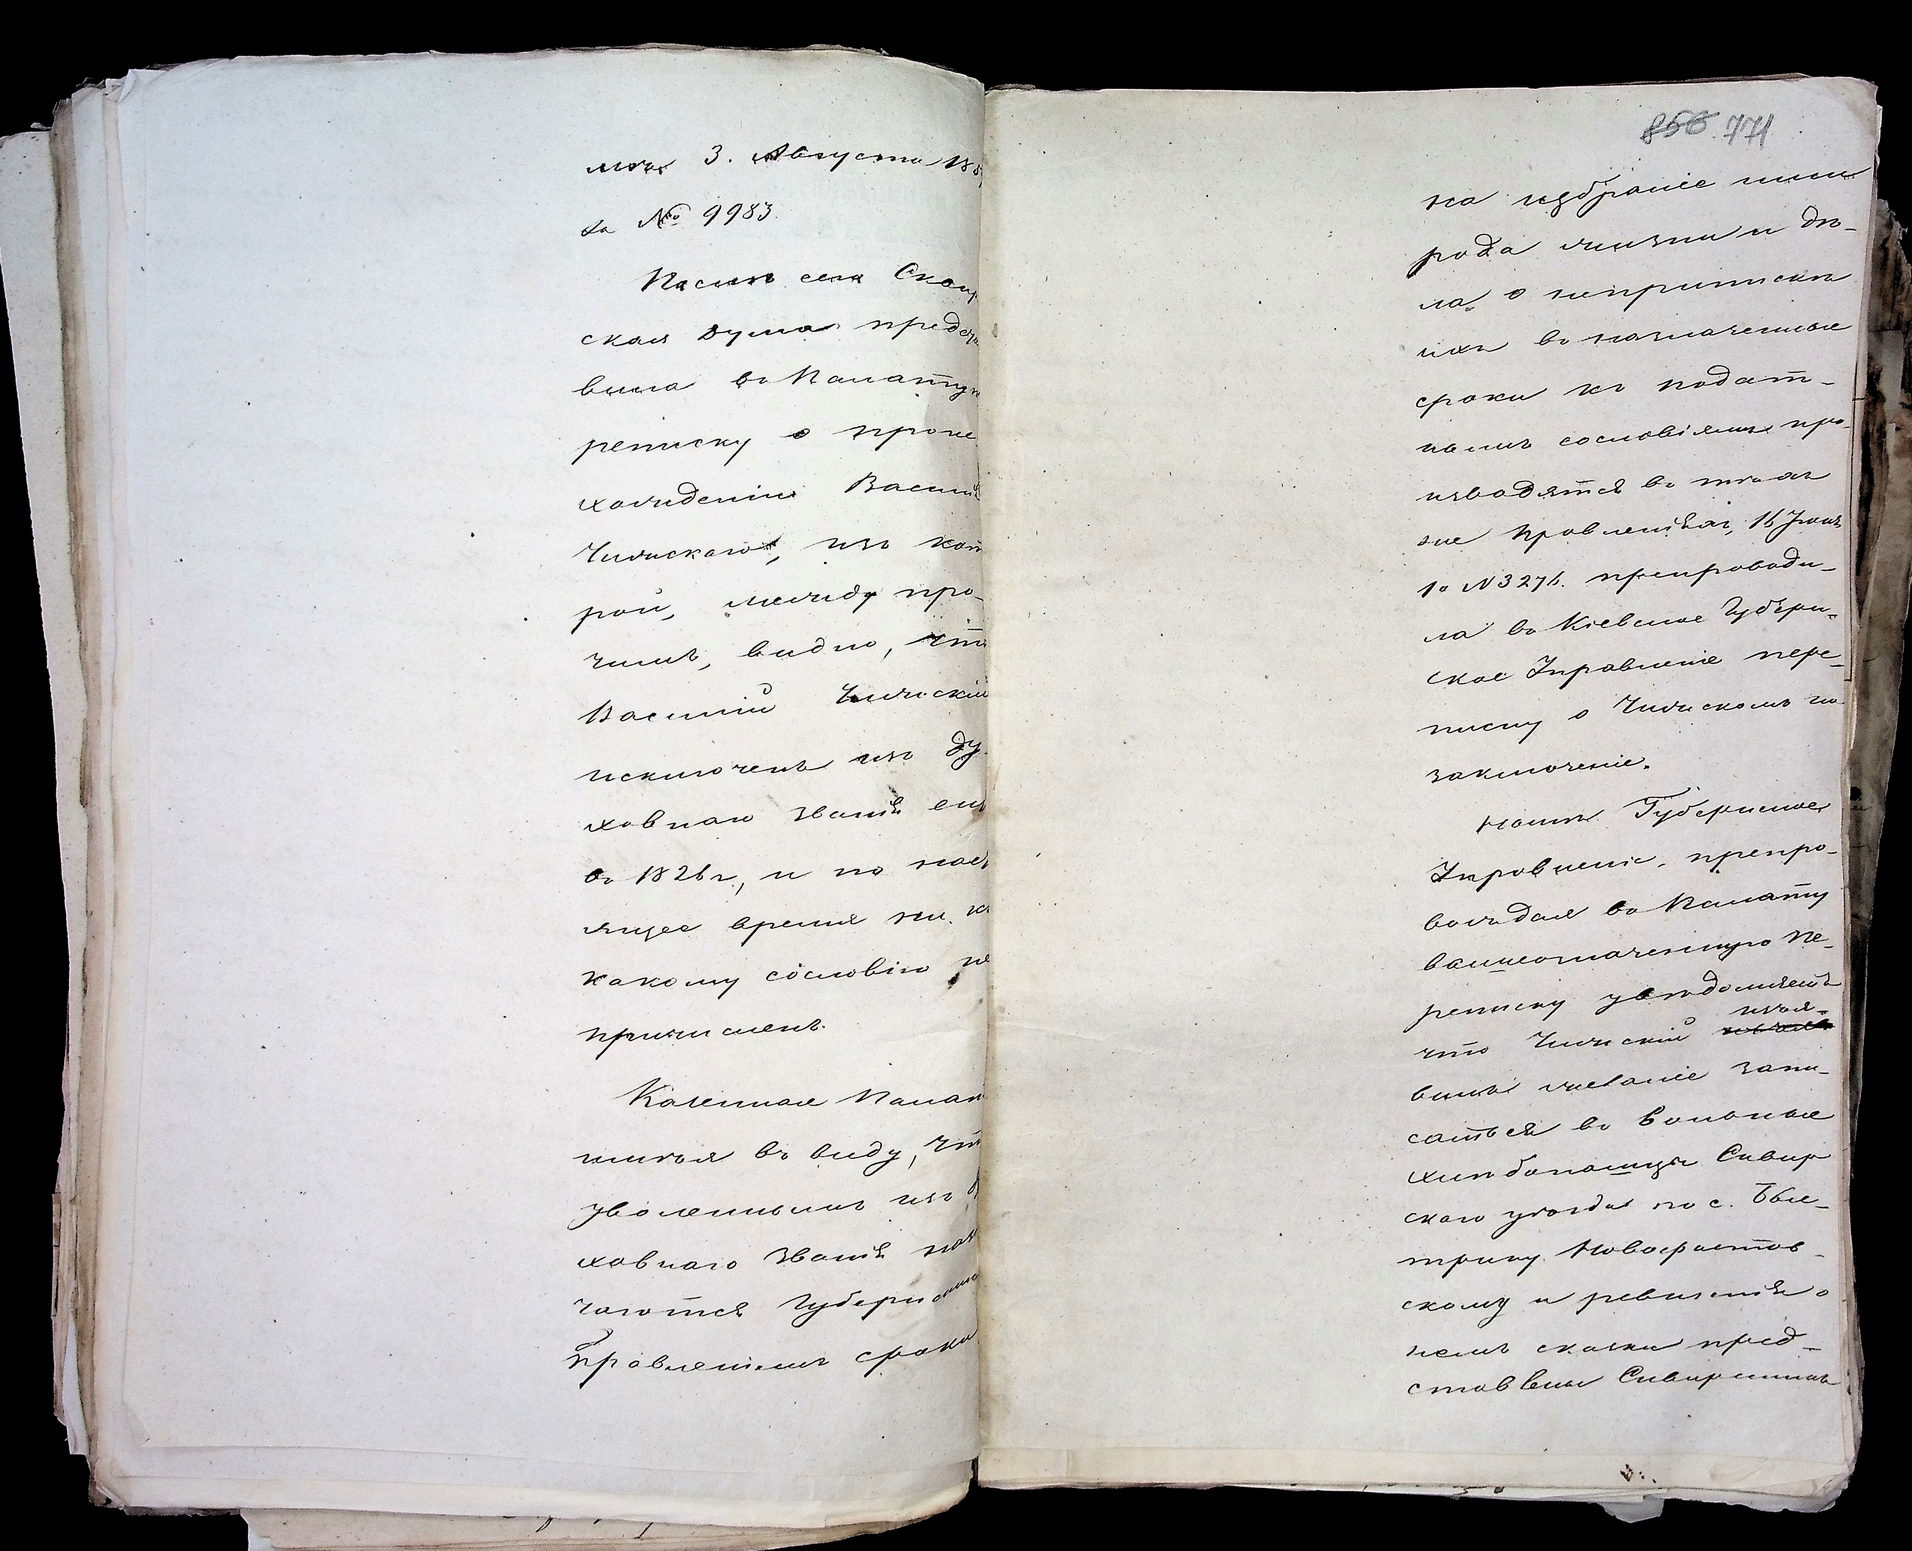 3. Августа 188
за № 9983.
Послѣ сего Сквир
ская Дума представи
вила въ Палату
реписку о проис
хожденіи Василія
Чижскаго, изъ кот
рой, между про-
чимъ, видно, что
Василій Чижскій
исключенъ изъ ду-
ховнаго званія ещ
въ 1826 г., и по наст
ящее время ни к
какому сословію не
причисленъ.
Казенная Палат
имѣя въ виду, чт
уволеннымъ изъ д
ховнаго званія наз
чаются Губернскимъ
Правленіемъ сроки
856 771
на избраніе ими
рода жизни и дѣ-
ла, о неприпискѣ
ихъ въ назначенные
сроки къ подат-
нымъ сословіямъ про-
изводятся въ тѣхъ
же Правленіяхъ, 16 Іюня
за N 3276. препроводи-
ла въ Кіевское Губерн-
ское Управленіе пере-
писку о Чижскомъ на
заключеніе.
Нынѣ Губернское
Управленіе, препро-
вождая въ Палату
вышеозначенную пе-
реписку увѣдомляетъ
изъя-
что Чижскій
вилъ желаніе запи-
саться въ вольные
хлѣбопашцы Сквир
скаго уѣзда по с. Бы-
стрику Новофастов-
скому и ревизскія о
немъ сказки пред-
ставлены Сквирскимъ